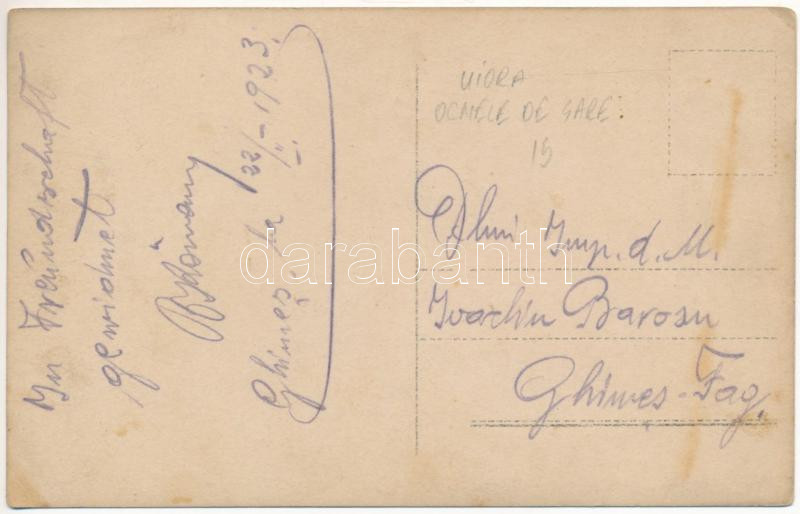 In Freundschaft
gewidmet
Ghimeș, la 22/II-1923.
UIORA
OCNELE DE SARE.
15
Dlui Insp. d. M.
Ioachin Barosu
Ghimeș-Fag.
darabanth